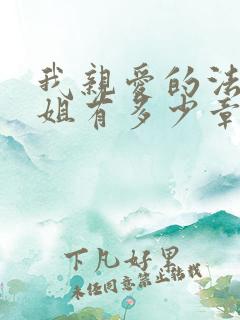 我親愛的法
姐有多少章
下凡好男
未经同意禁止转载